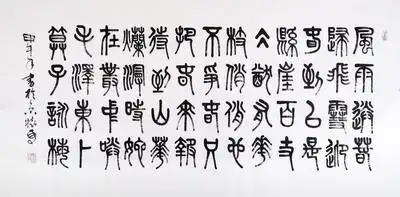 風雨送春
歸飛雪迎
春到已是
懸崖百丈
冰猶有花
枝俏俏也
不爭春只
把春來報
待到山花
爛漫時她
在叢中笑
毛澤東卜
算子詠梅
甲午年書於京